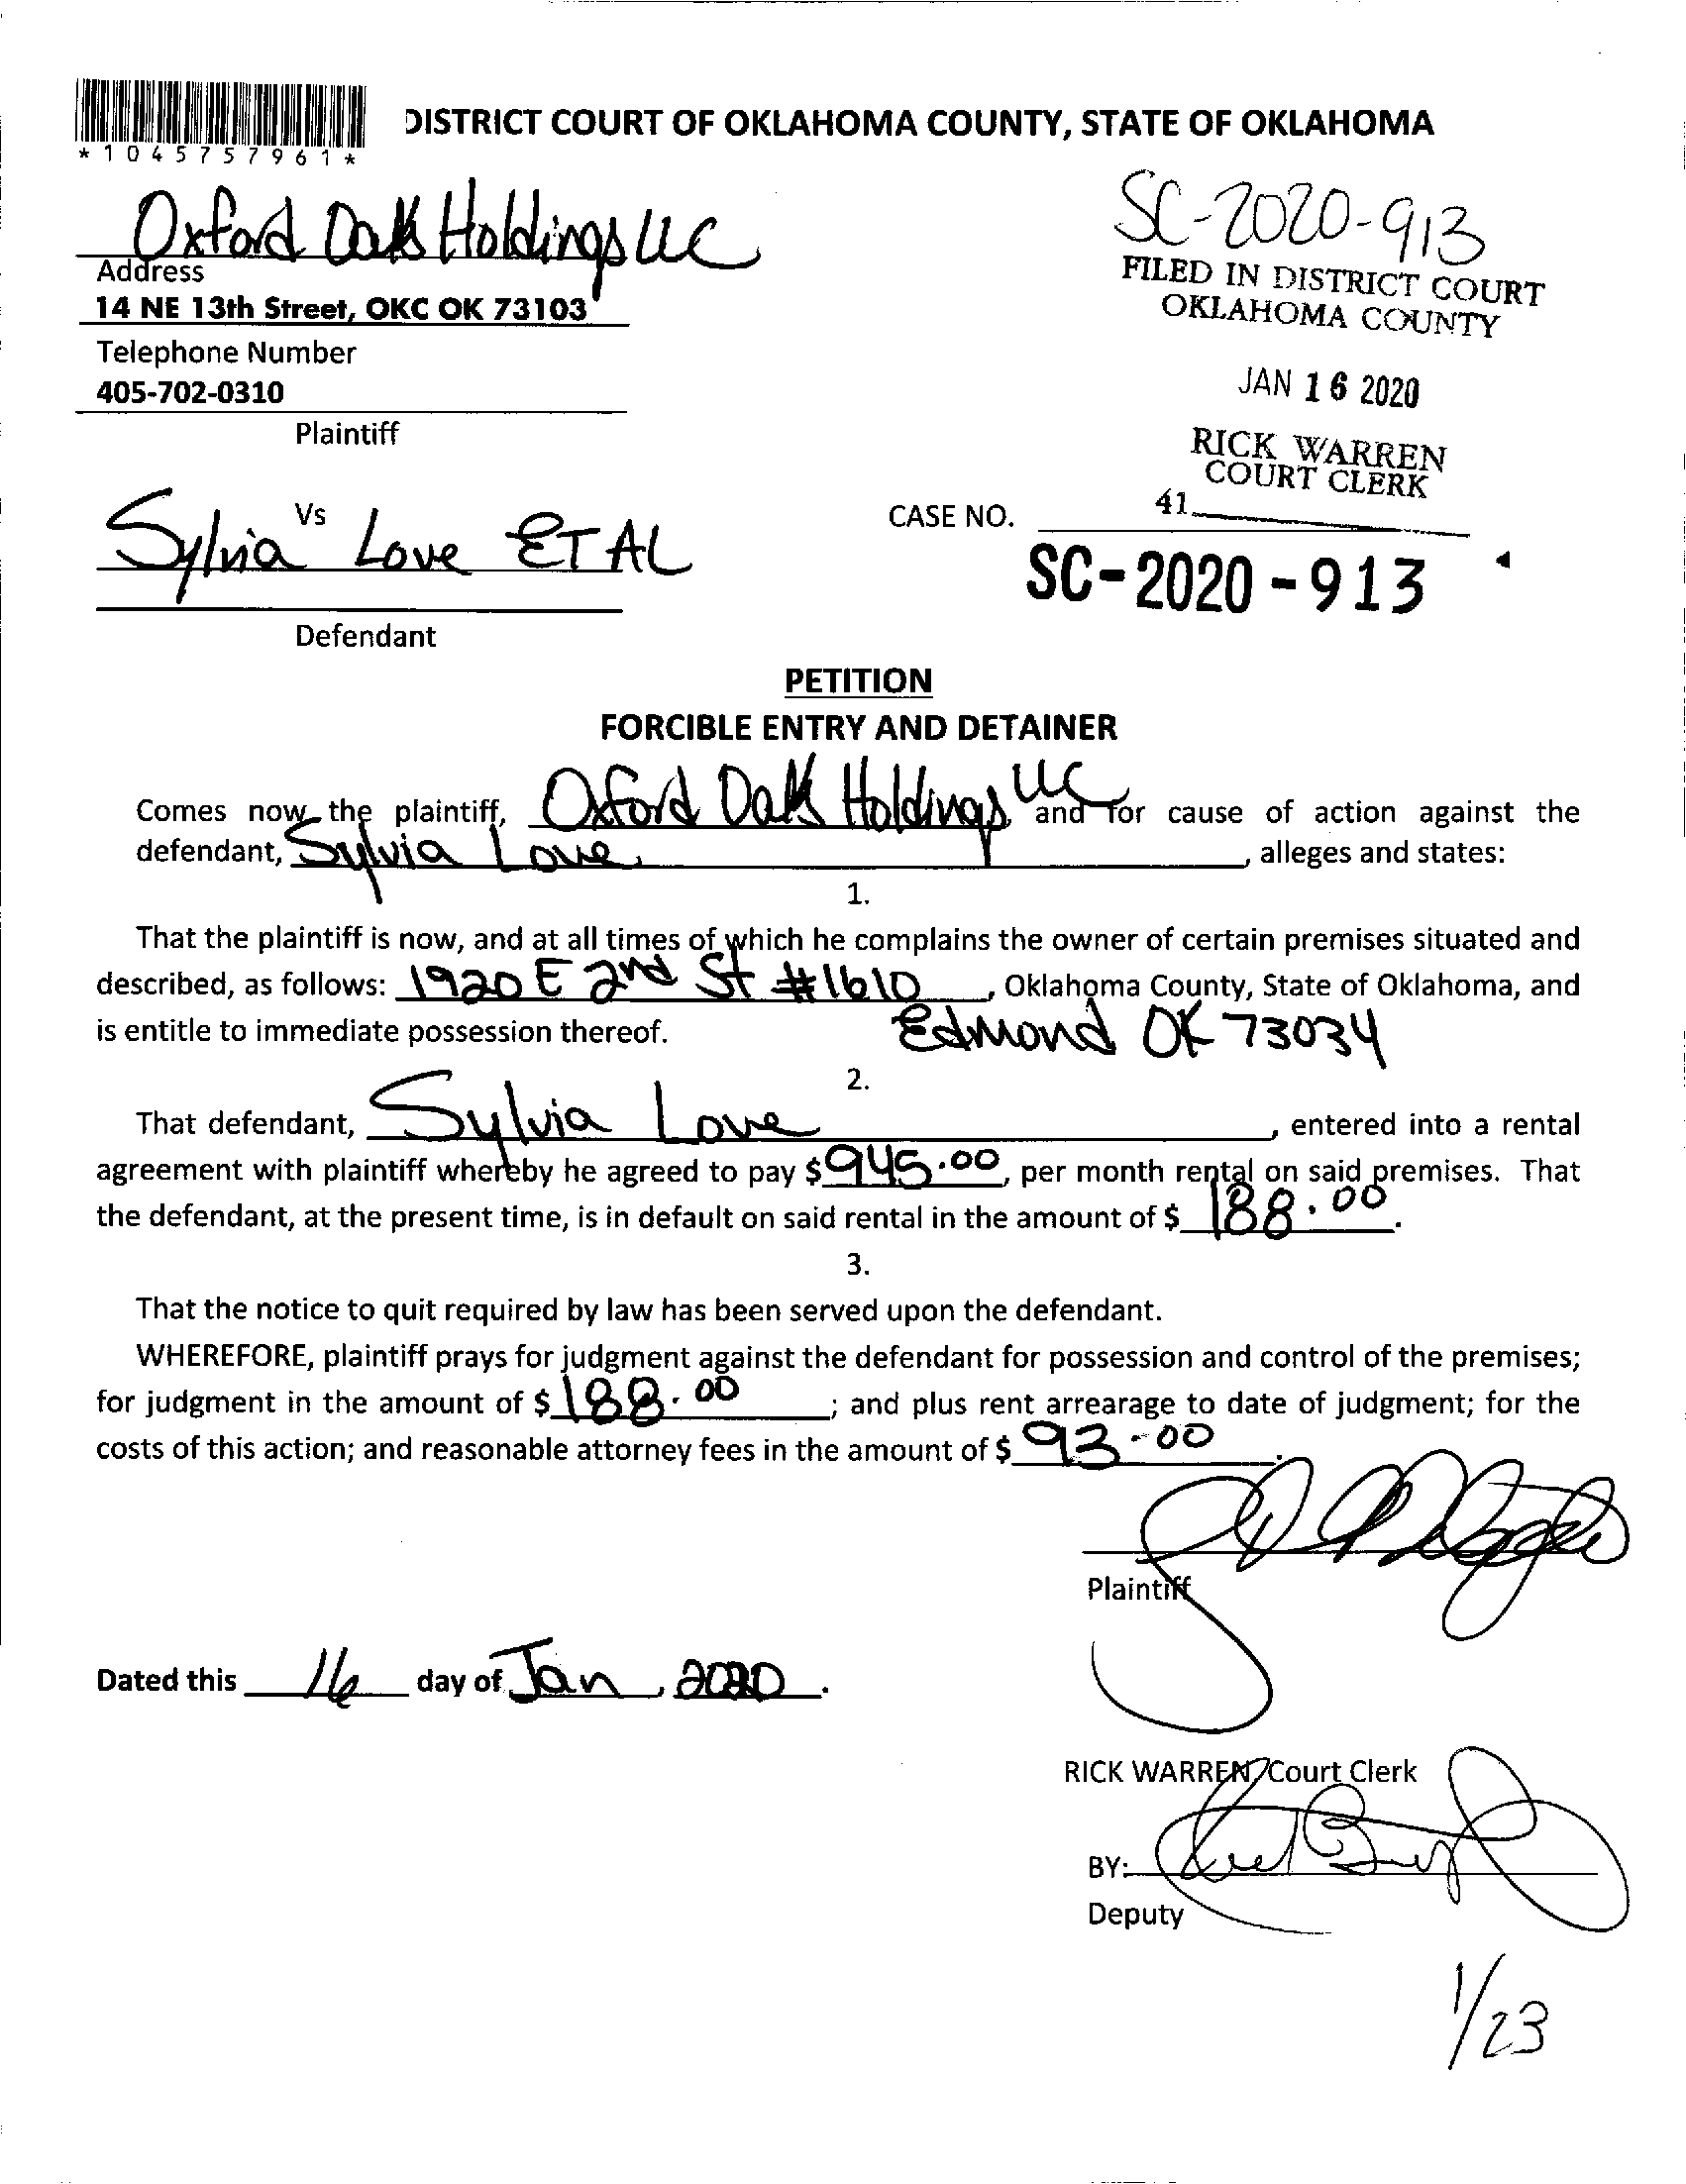 DISTRICT COURT OF OKLAHOMA COUNTY, STATE OF OKLAHOMA
*1045757961*
Oxford Oaks Holdings LLC
SC-2020-913
Address
14 NE 13th Street, OKC OK 73103
FILED IN DISTRICT COURT
OKLAHOMA COUNTY
Telephone Number
405-702-0310
JAN 16 2020
Plaintiff
RICK WARREN
COURT CLERK
41
Vs
Sylvia Love ET AL
CASE NO.
SC-2020-913
Defendant
PETITION
FORCIBLE ENTRY AND DETAINER
Comes now the plaintiff, Oxford Oaks Holdings, LLC and for cause of action against the
defendant, Sylvia Love, alleges and states:
1.
That the plaintiff is now, and at all times of which he complains the owner of certain premises situated and
described, as follows: 1920 E 2nd St #1610, Oklahoma County, State of Oklahoma, and
is entitle to immediate possession thereof. Edmond OK 73034
2.
That defendant, Sylvia Love, entered into a rental
agreement with plaintiff whereby he agreed to pay $945.00, per month rental on said premises. That
the defendant, at the present time, is in default on said rental in the amount of $188.00.
3.
That the notice to quit required by law has been served upon the defendant.
WHEREFORE, plaintiff prays for judgment against the defendant for possession and control of the premises;
for judgment in the amount of $188.00; and plus rent arrearage to date of judgment; for the
costs of this action; and reasonable attorney fees in the amount of $93.00.
Plaintiff
Dated this 16 day of Jan, 2020.
RICK WARREN, Court Clerk
BY:
Deputy
1/23